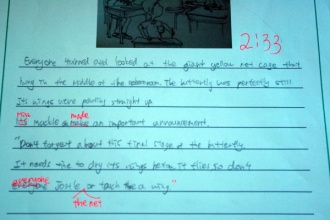 2:33
Everyone turned and looked at the giant yellow net cage that
hung in the middle of the The butterfly was perfectly still.
Its wings were pointing straight up.
Miss made
Mackle an important announcement.
"Don't forget about this final stage of the butterfly.
It needs time to dry its wings before it flies so don't
everyone
or touch the wing."
the net